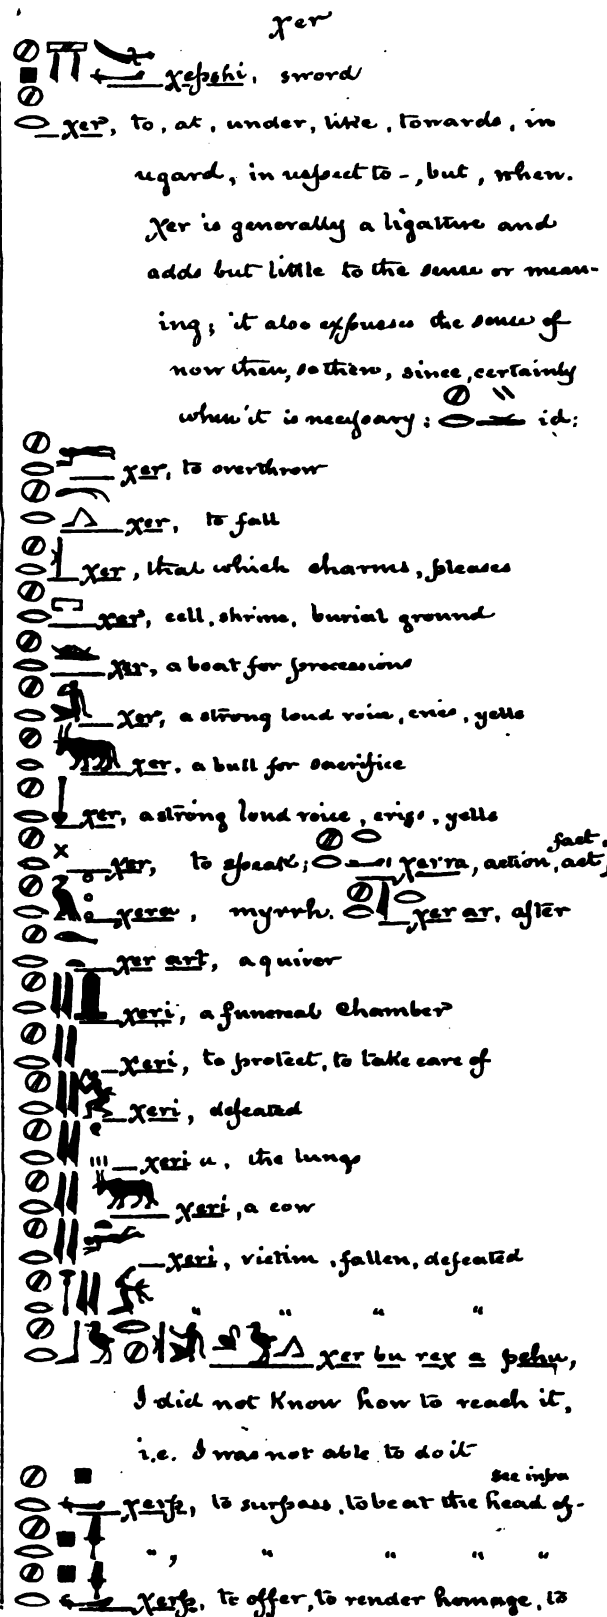 χer
χepshi, sword
χer, to, at, under, like, towards, in
regard, in respect to -, but, when.
χer is generally a ligature and
adds but little to the sense or mean-
ing; it also expresses the sense of
now then, so then, since, certainly
when it is necessary: id:
χer, to overthrow
χer, to fall
χer, that which charms, pleases
χer, cell, shrine, burial ground
χer, a boat for processions
χer, a strong loud voice, cries, yells
χer, a bull for sacrifice
χer, a strong loud voice, cries, yells
χer, to speak; χerra, action, act, fact,
χera, myrrh. χer ar, after
χer art, a quiver
χeri, a funereal chamber
χeri, to protect, to take care of
χeri, defeated
χeri u, the lungs
χeri, a cow
χeri, victim, fallen, defeated
" " " "
χer bu reχ a pehu,
I did not know how to reach it,
i.e. I was not able to do it
see infra
χerp, to surpass, to be at the head of-
", " " " "
χerp, to offer, to render homage, to